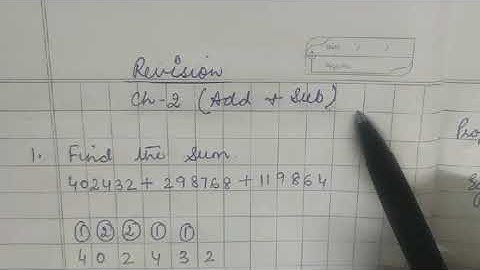 Revision
Ch-2 (Add + Sub)
1. Find the Sum
402432 + 298768 + 119864
① ② ② ① ①
4 0 2 4 3 2